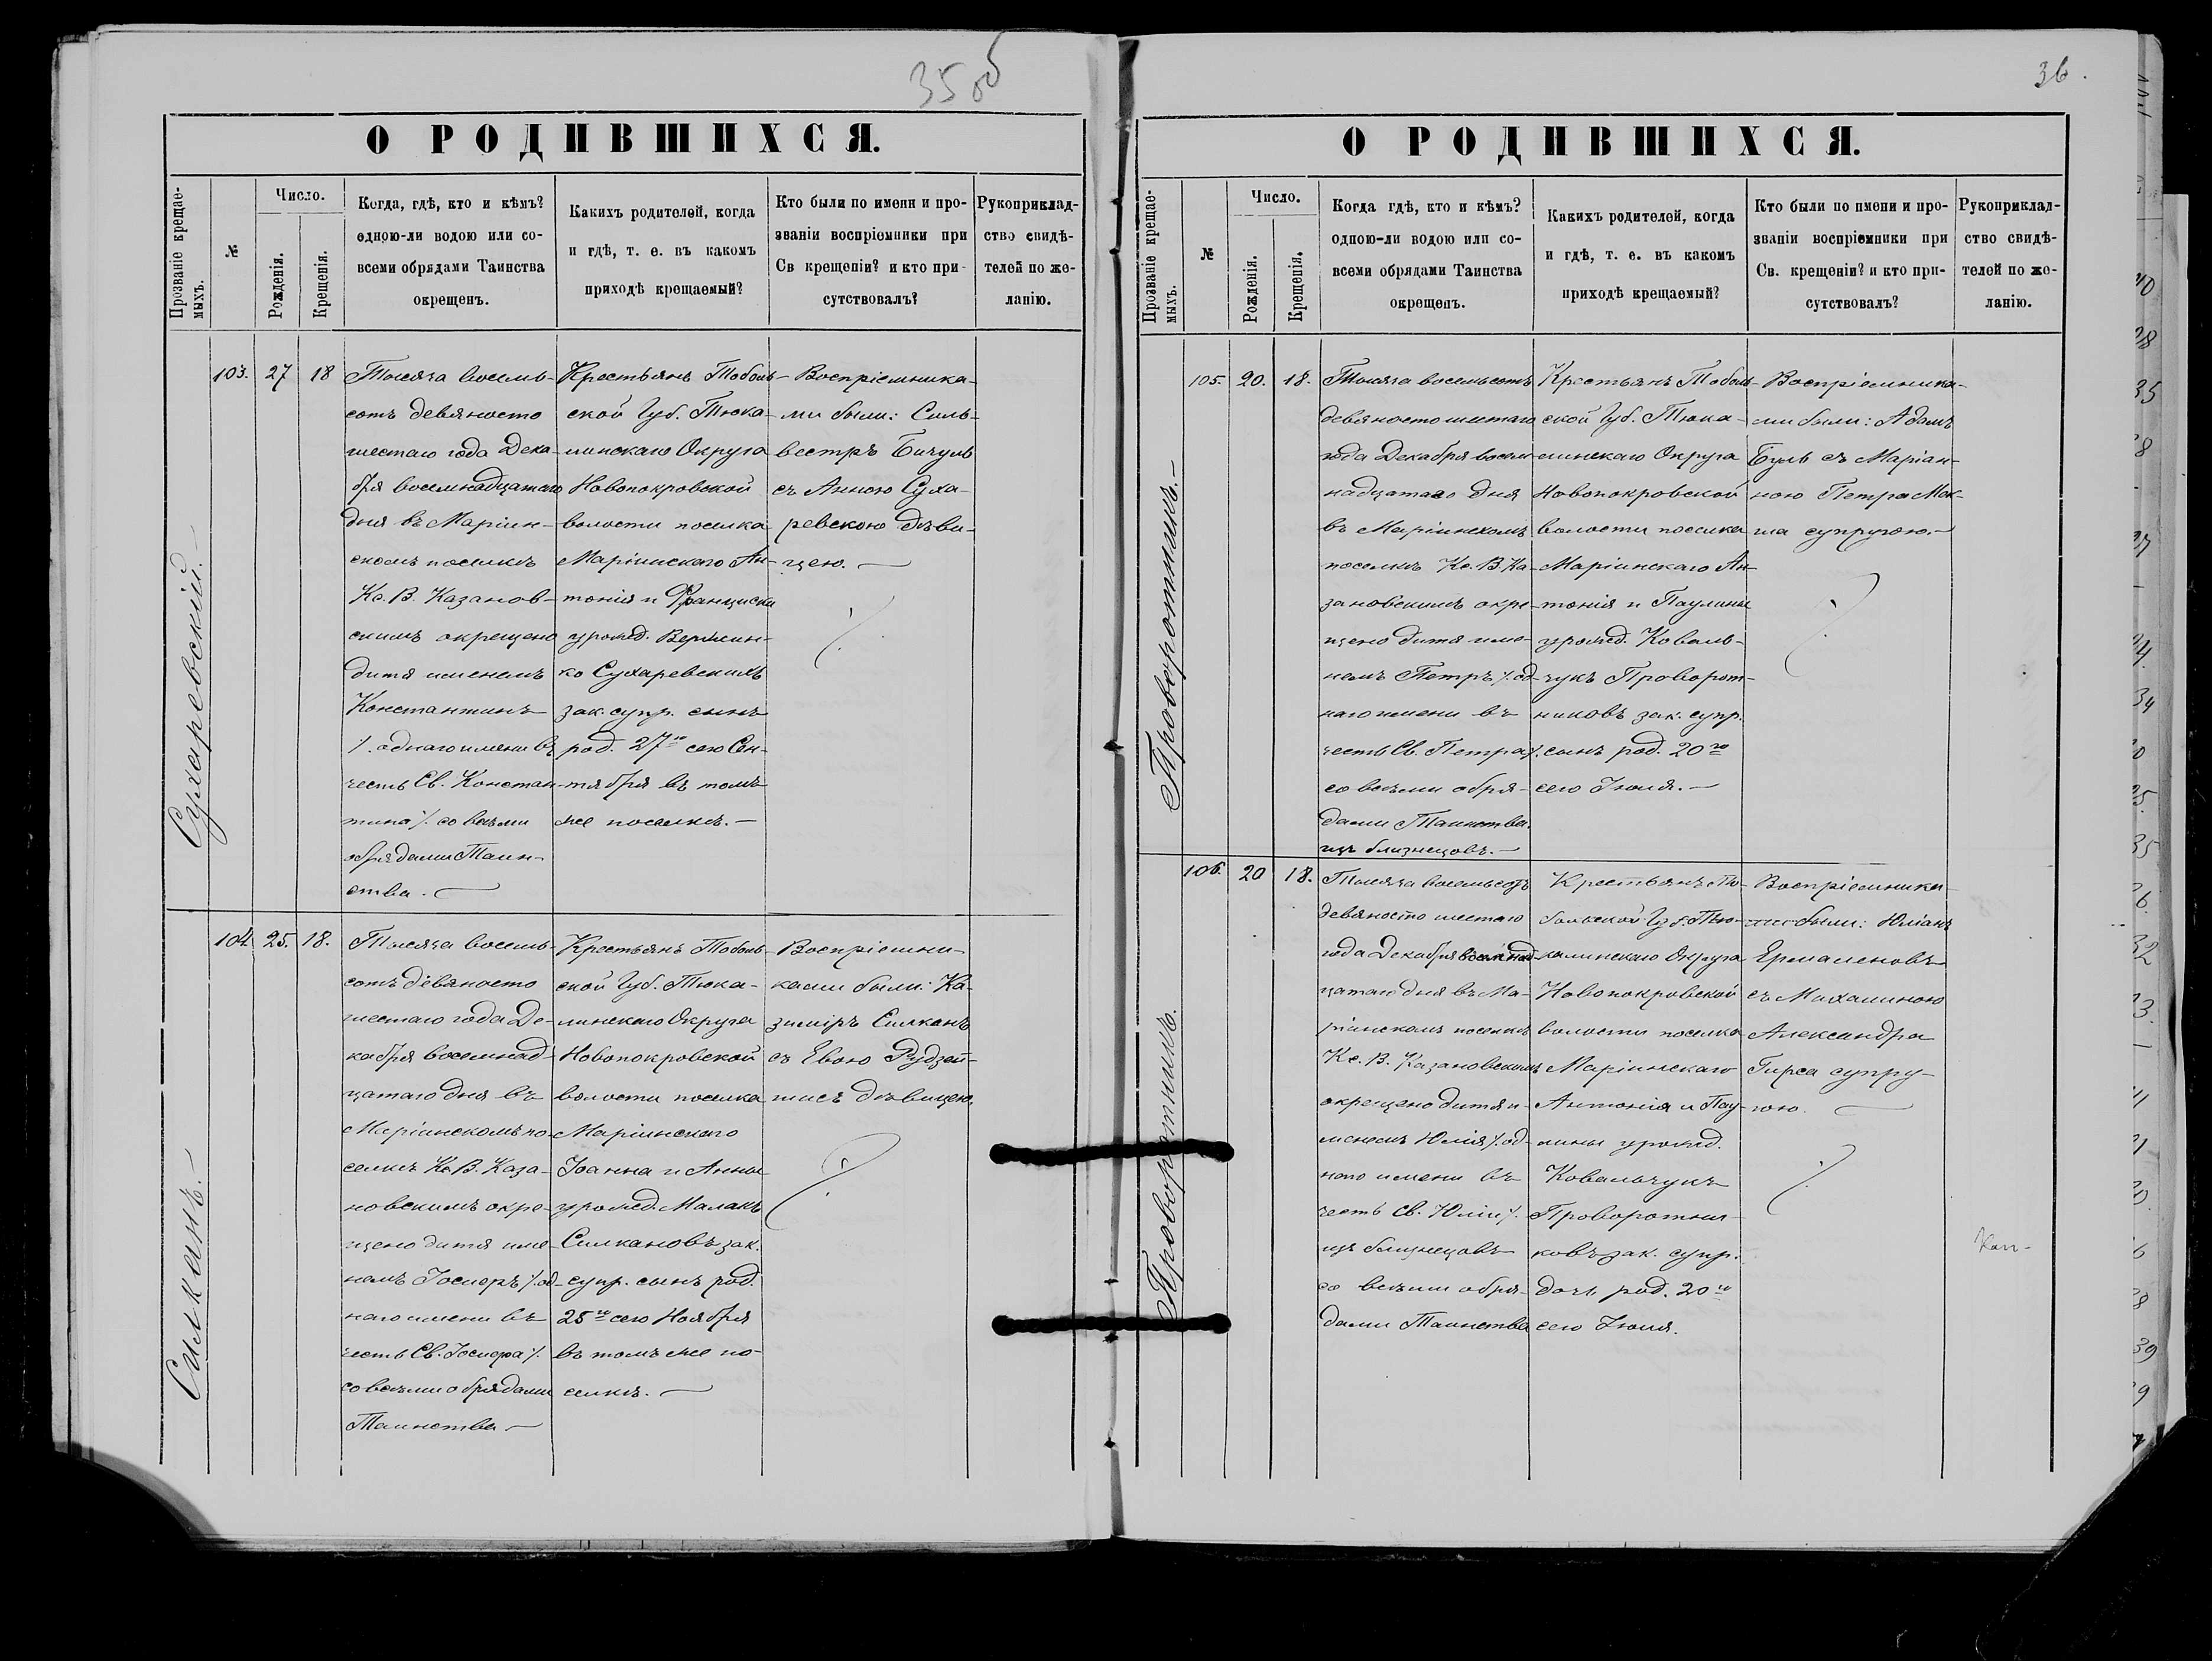 35 об
О РОДИВШИХСЯ.
Прозваніе крещае-
мыхъ.
№
Число.
Рожденія.
Крещенія.
Когда, гдѣ, кто и кѣмъ?
одною-ли водою или со-
всеми обрядами Таинства
окрещенъ.
Какихъ родителей, когда
и гдѣ, т. е. въ какомъ
приходѣ крещаемый?
Кто были по имени и про-
званіи воспріемники при
Св крещеніи? и кто при-
сутствовалъ?
Рукоприклад-
ство свидѣ-
телей по же-
ланію.
Сухаревскій.
103.
27
18
Тысяча восемь-
сотъ девяносто
шестаго года Дека-
бря восемнадцатаго
дня въ Маріин-
скомъ поселкѣ
Кс. В. Казанов-
скимъ окрещено
дитя именемъ
Константинъ
/. одного имени въ
честь Св. Констан-
тина /. со всѣми
обрядами Таин-
ства.
Крестьянъ Тоболь-
ской Губ. Тюка-
линскаго Округа
Новопокровской
волости поселка
Маріинскаго Ан-
тонія и Франциски
урожд. Вержин-
ко Сухаревскихъ
зак. супр. сынъ
род. 27го сего Сен-
тября въ томъ
же поселкѣ.
Воспріемника-
ми были: Силь-
вестръ Бичуль
съ Анною Суха-
ревскою дѣви-
цею.
Силканъ.
104
25.
18.
Тысяча восемь-
сотъ девяносто
шестаго года Де-
кабря восемнад-
цатаго дня въ
Маріинскомъ по-
селкѣ Кс. В. Каза-
новскимъ окре-
щено дитя име-
немъ Іосифъ /. од-
ного имени въ
честь Св. Іосифа /.
со всѣми обрядами
Таинства
Крестьянъ Тоболь-
ской Губ. Тюка-
линскаго Округа
Новопокровской
волости поселка
Маріинскаго
Іоанна и Анны
урожд. Малакъ
Силкановъ зак.
супр. сынъ род.
25го сего Ноября
въ томъ же по-
селкѣ.
Воспріемни-
ками были: Ка-
зиміръ Силканъ
съ Евою Рудзей-
тисъ дѣвицею.
36.
О РОДИВШИХСЯ.
Прозваніе крещае-
мыхъ.
№
Число.
Рожденія.
Крещенія.
Когда гдѣ, кто и кѣмъ?
одною-ли водою или со-
всеми обрядами Таинства
окрещенъ.
Какихъ родителей, когда
и гдѣ, т. е. въ какомъ
приходѣ крещаемый?
Кто были по имени и про-
званіи воспріемники при
Св. крещеніи? и кто при-
сутствовалъ?
Рукоприклад-
ство свидѣ-
телей по же-
ланію.
Проворотникъ.
105.
20.
18.
Тысяча восемьсотъ
девяносто шестаго
года Декабря восем-
надцатаго дня
въ Маріинскомъ
поселкѣ Кс. В. Ка-
зановскимъ окре-
щено дитя име-
немъ Петръ /. од-
ного имени въ
честь Св. Петра /.
со всѣми обря-
дами Таинства.
изъ близнецовъ.
Крестьянъ Тоболь-
ской Губ. Тюка-
линскаго Округа
Новопокровской
волости поселка
Маріинскаго Ан-
тонія и Паулины
урожд. Коваль-
чукъ Проворот-
никовъ зак. супр.
сынъ род. 20го
сего Іюля.
Воспріемника-
ми были: Адамъ
Буль съ Маріан-
ною Петра Мок-
ша супругою.
Проворотникъ.
106.
20
18.
Тысяча восемьсотъ
девяносто шестаго
года Декабря восемнад-
цатаго дня въ Ма-
ріинскомъ поселкѣ
Кс. В. Казановскимъ
окрещено дитя и-
менемъ Юлія /. од-
ного имени въ
честь Св. Юліи /.
изъ близнецовъ
со всѣми обря-
дами Таинства
Крестьянъ То-
больской Губ. Тю-
калинскаго Округа
Новопокровской
волости поселка
Маріинскаго
Антонія и Пау-
лины урожд.
Ковальчукъ
Проворотни-
ковъ зак. супр.
дочь род. 20го
сего Іюля.
Воспріемника-
ми были: Юліанъ
Ермаленовъ
съ Михалиною
Александра
Гирса супру-
гою.
Кап-